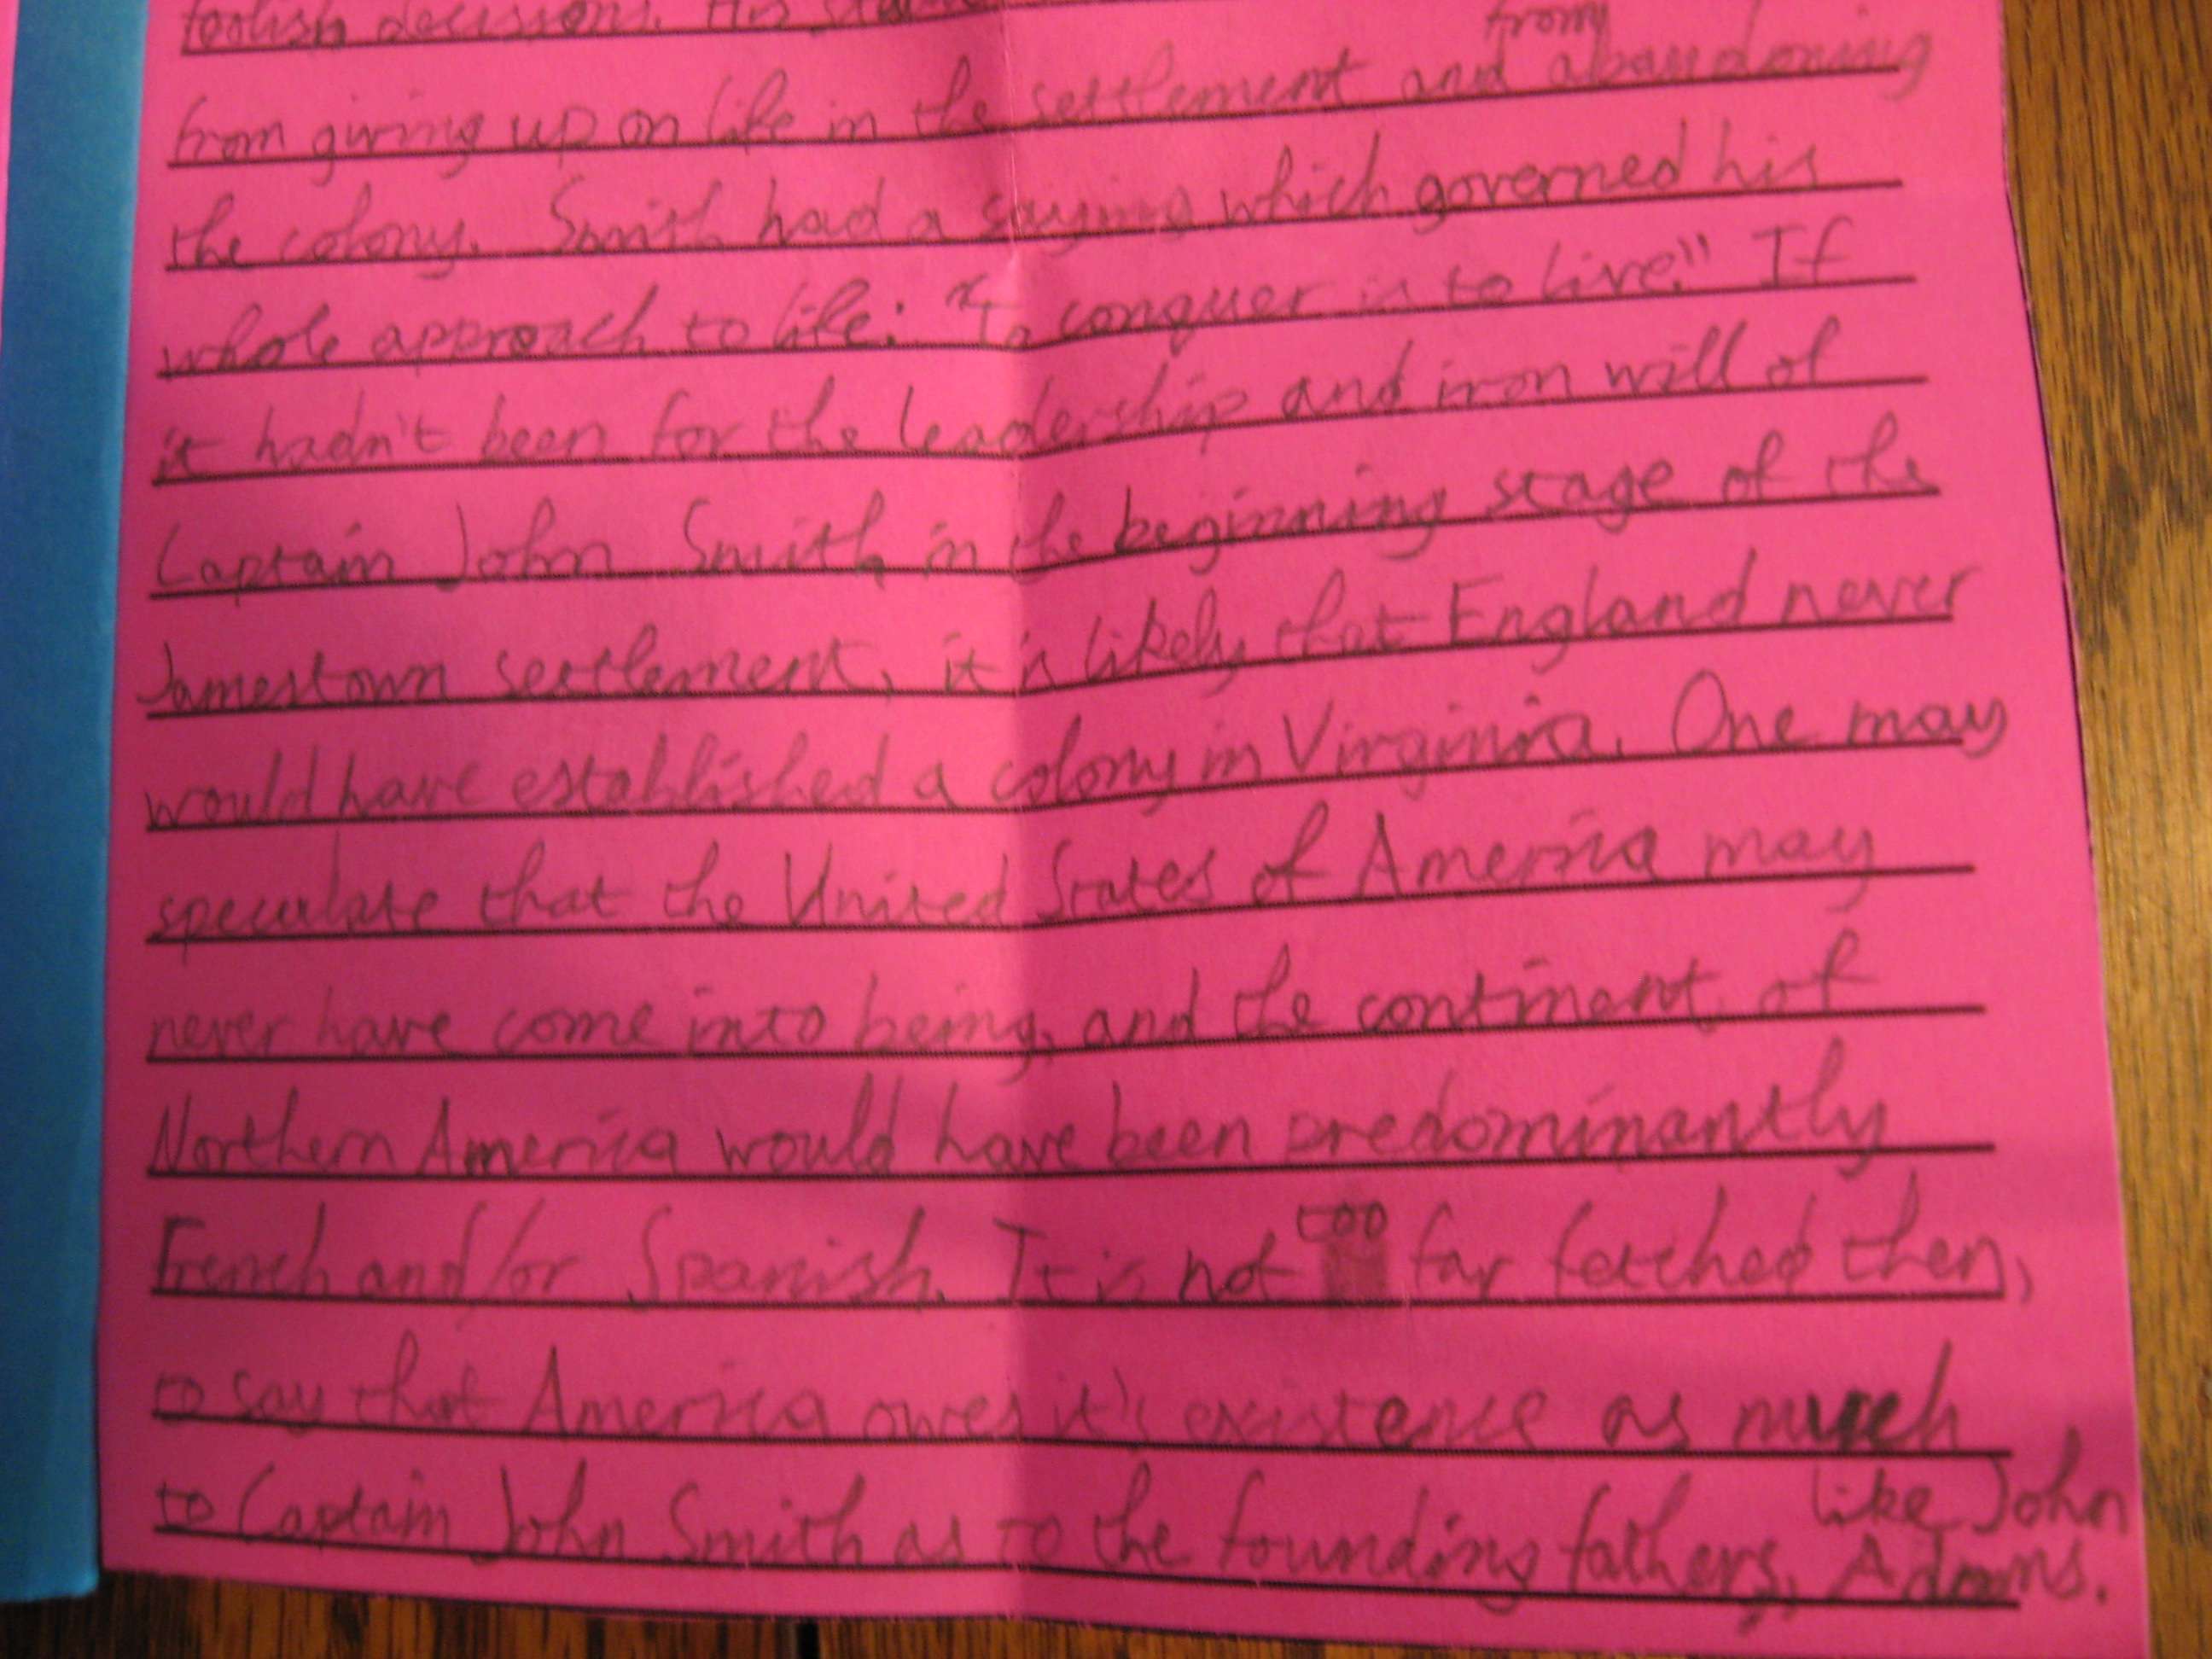 foolish decisions. His
from giving up on life in the settlement and from abandoning
the colony. Smith had a saying which governed his
whole approach to life: "To conquer is to live." If
it hadn't been for the leadership and iron will of
Captain John Smith in the beginning stage of the
Jamestown settlement, it is likely that England never
would have established a colony in Virginia. One may
speculate that the United States of America may
never have come into being, and the continent of
Northern America would have been predominantly
French and/or Spanish. It is not too far fetched then,
to say that America owes it's existence as much
to Captain John Smith as to the founding fathers, like John Adams.